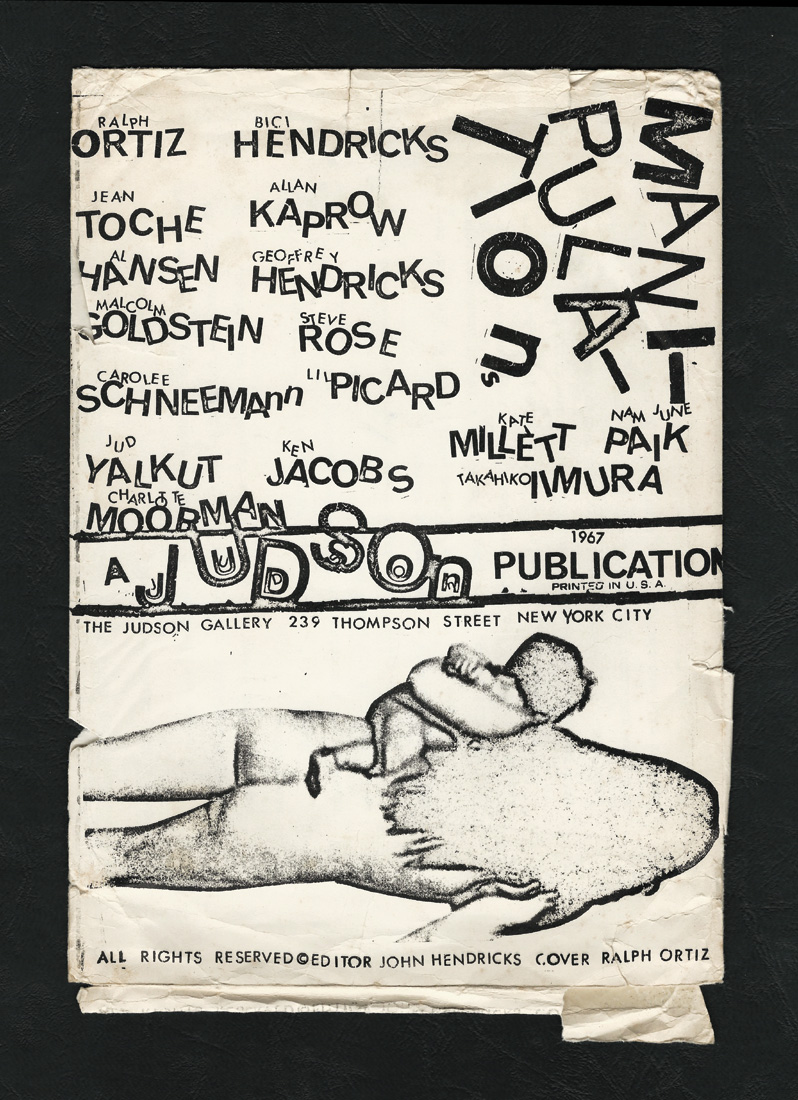 MANI-
PULA-
TIOns
RALPH
ORTIZ
BICI
HENDRICKS
JEAN
TOCHE
ALLAN
KAPROW
AL
HANSEN
GEOFFREY
HENDRICKS
MALCOLM
GOLDSTEIN
STEVE
ROSE
CAROLEE
SCHNEEMAnn
LIL PICARD
KATE
MILLETT
NAM JUNE
PAIK
JUD
YALKUT
KEN
JACOBS
TAKAHIKO IIMURA
CHARLOTTE
MOORMAN
A JUDSOn
1967
PUBLICATION
PRINTED IN U.S.A.
THE JUDSON GALLERY 239 THOMPSON STREET NEW YORK CITY
ALL RIGHTS RESERVED © EDITOR JOHN HENDRICKS COVER RALPH ORTIZ